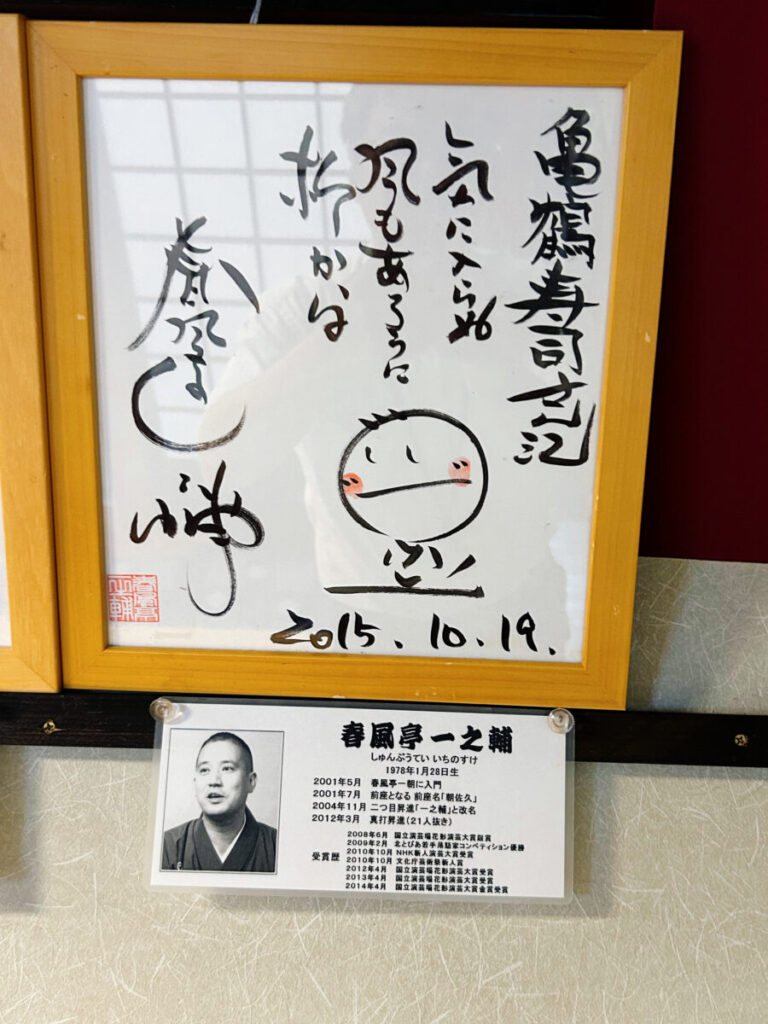 亀鶴寿司さん江
気に入らぬ
風もあるうに
柳かな
春風亭
一之輔
2015.10.19.
春風亭一之輔
しゅんぷうてい いちのすけ
1978年1月28日生
2001年5月 春風亭一朝に入門
2001年7月 前座となる 前座名「朝佐久」
2004年11月 二つ目昇進「一之輔」と改名
2012年3月 真打昇進(21人抜き)
受賞歴
2008年6月 国立演芸場花形演芸大賞銀賞
2009年2月 北とぴあ若手落語家コンペティション優勝
2010年10月 NHK新人演芸大賞受賞
2010年10月 文化庁芸術祭新人賞
2012年4月 国立演芸場花形演芸大賞受賞
2013年4月 国立演芸場花形演芸大賞受賞
2014年4月 国立演芸場花形演芸大賞金賞受賞